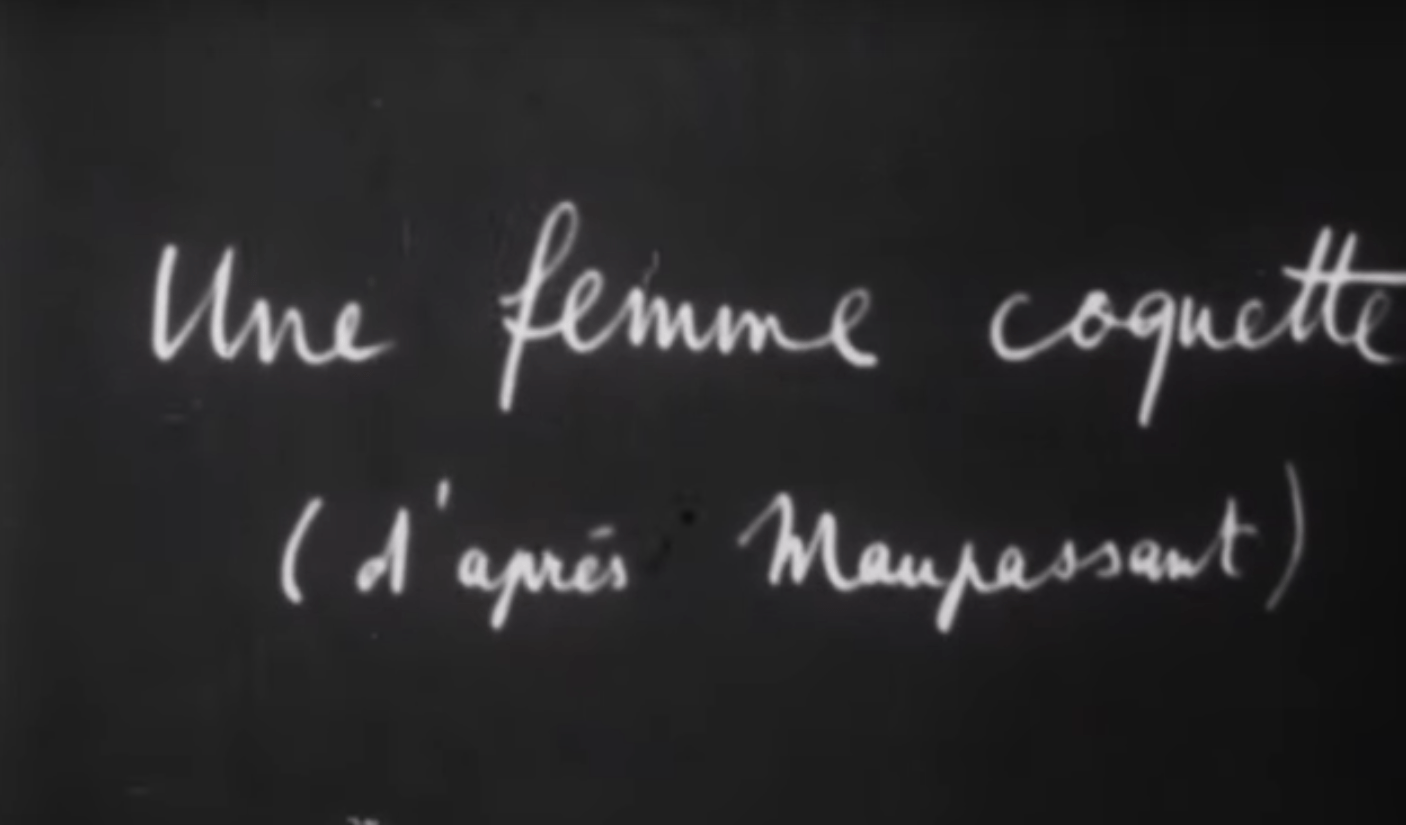 Une femme coquette
(d'après Maupassant)